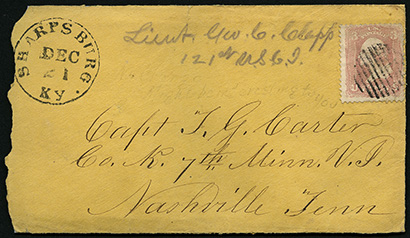 SHARPSBURG.
DEC
21
Ky
Lieut. Geo. C. Clapp
121st U S C I.
3 3
Capt T. G. Carter
Co. K. 7th Minn. V. I.
Nashville Tenn